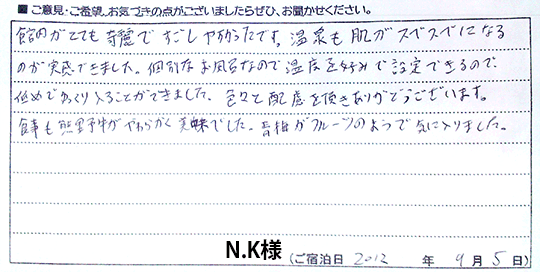 ■ご意見・ご希望しお気づきの点がございましたらぜひ、お聞かせください。
館内がとても奇麗ですごしやすかったです。温泉も肌がスベスベになる
のが実感できました。個別なお風呂なので温度を好みで設定できるので、
低めでゆっくり入ることができました。色々と配慮を頂きありがとうございます。
食事も熊野牛がやわらかく美味でした。青梅がフルーツのようで気に入りました。
N.K様
(ご宿泊日 2012 年 9月 5日)